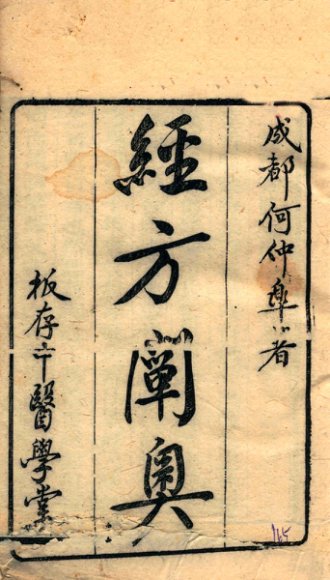 成都何仲皐著
經方闡奧
板存中醫學堂